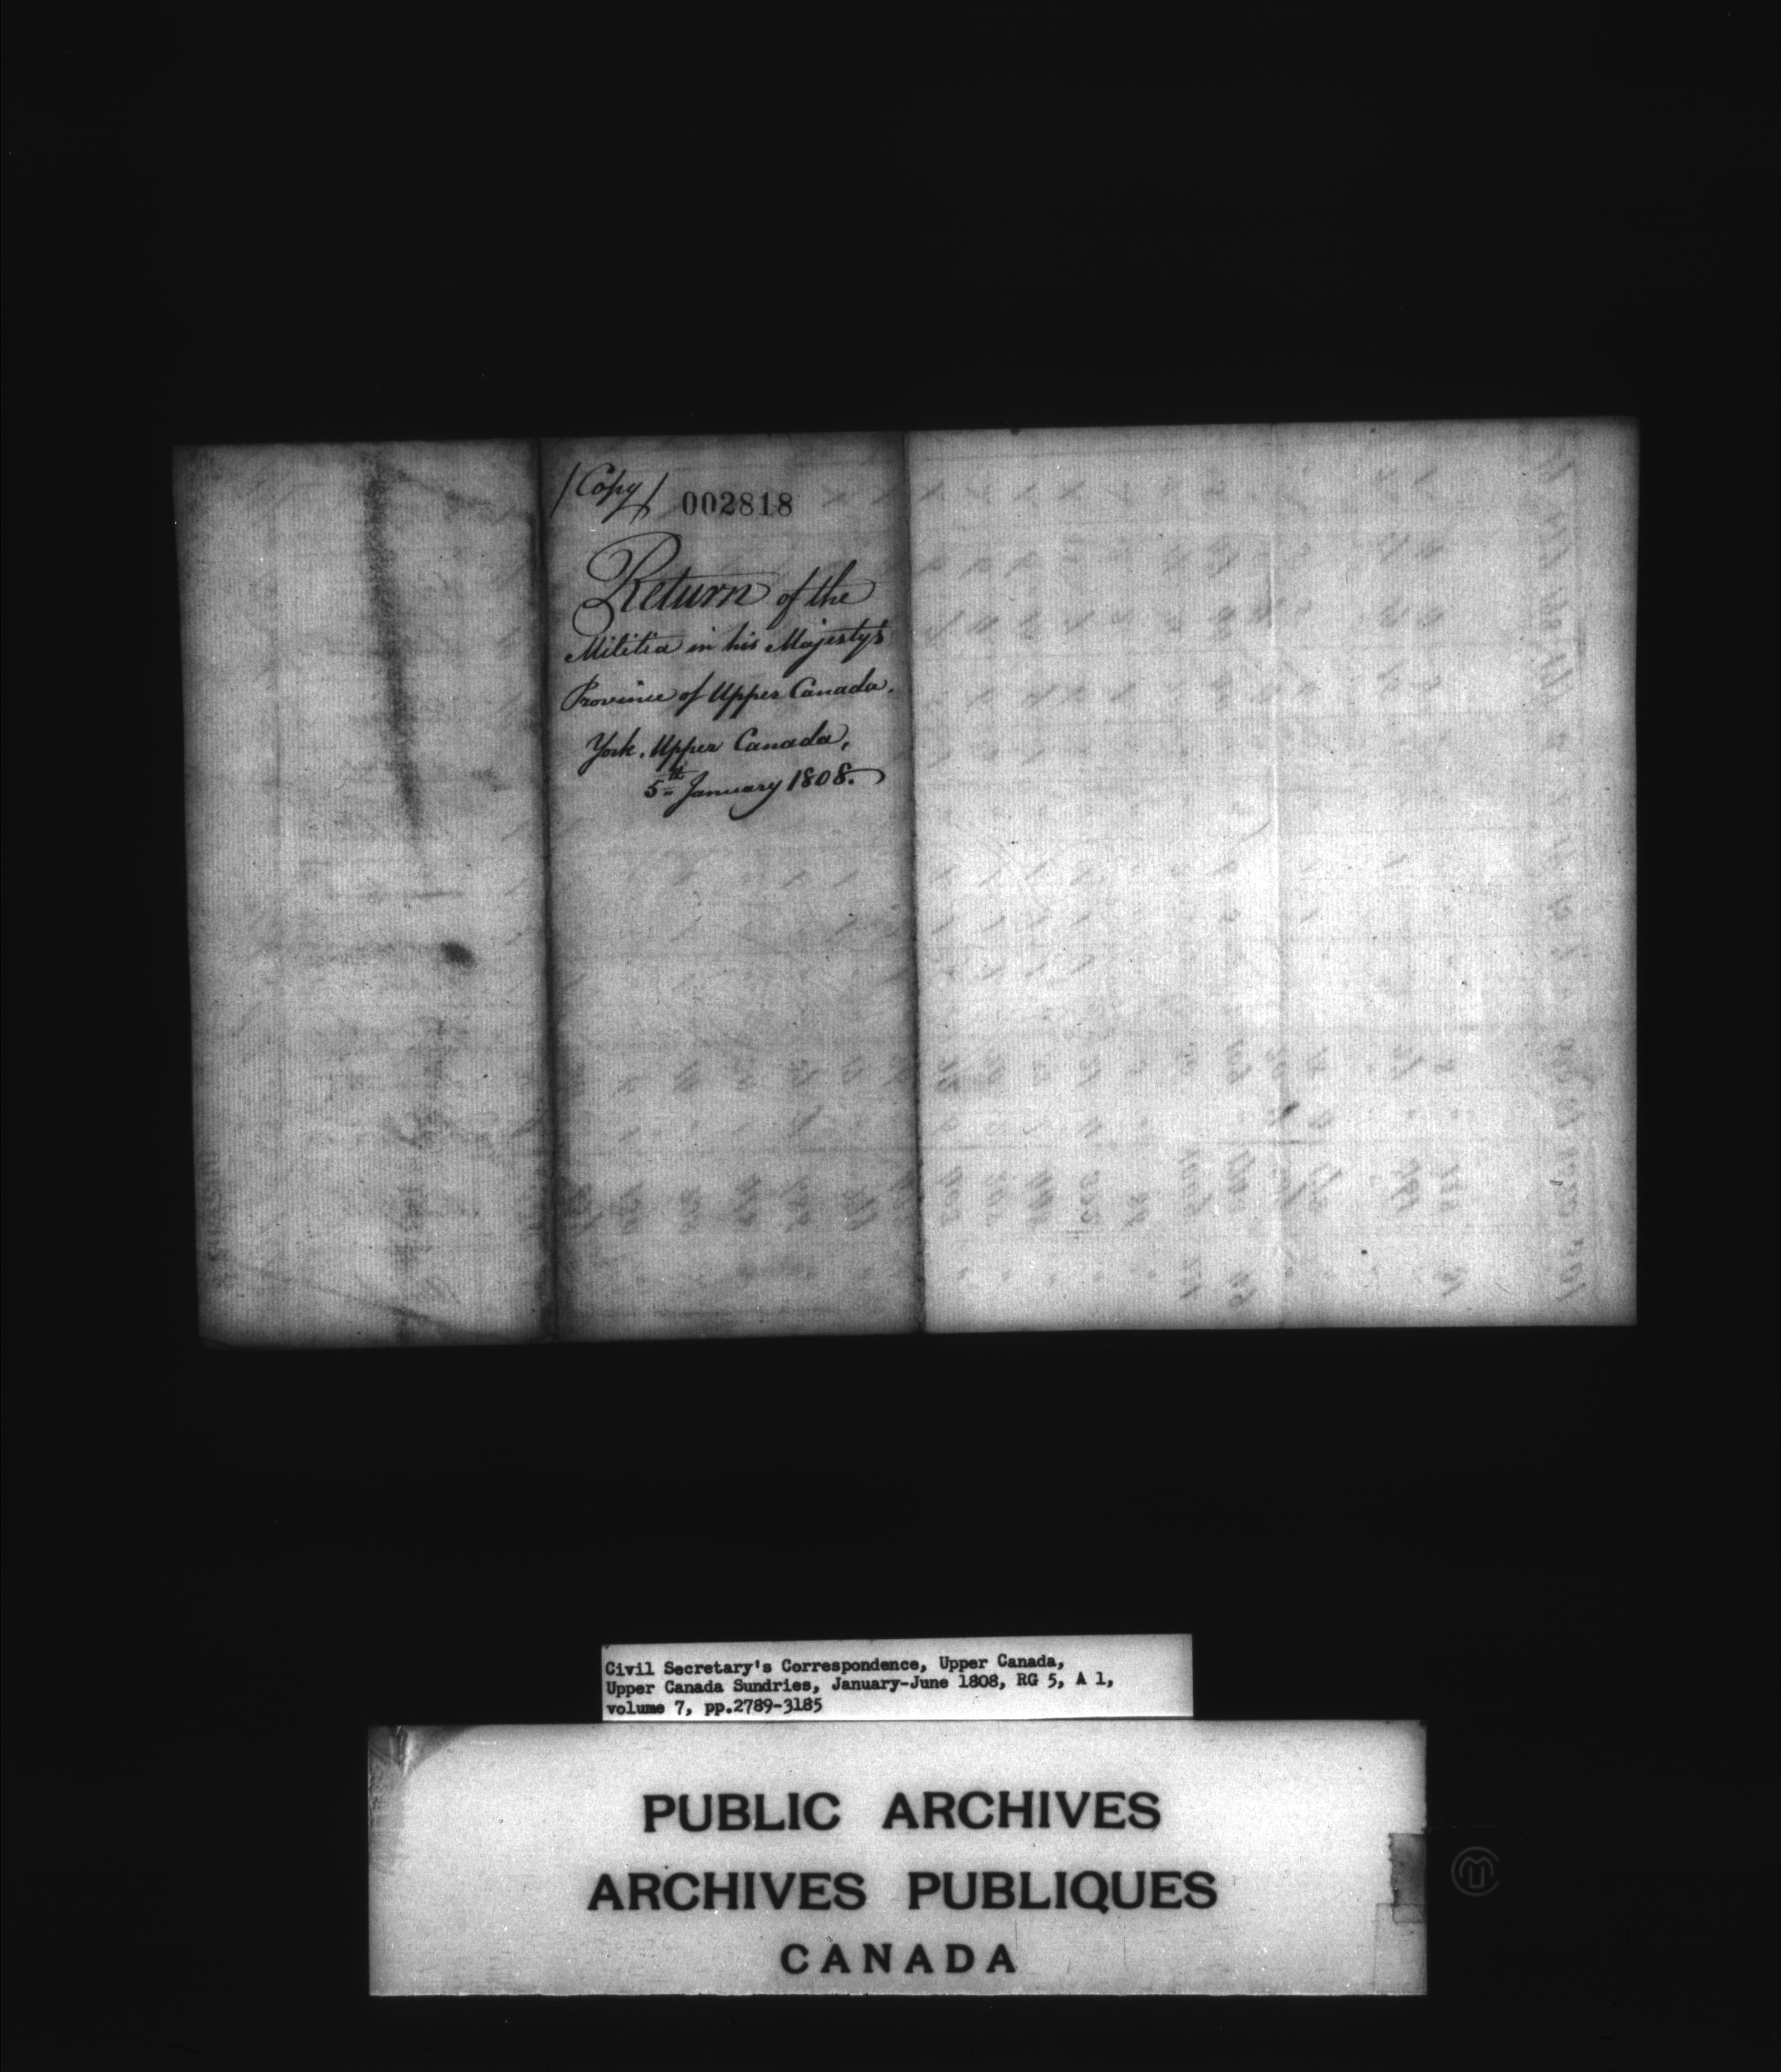 /Copy/
002818
Return of the
Militia in his Majesty's
Province of Upper Canada.
York. Upper Canada,
5th January 1808.
Civil Secretary's Correspondence, Upper Canada,
Upper Canada Sundries, January-June 1808, RG 5, A 1,
volume 7, pp.2789-3185
PUBLIC ARCHIVES
ARCHIVES PUBLIQUES
CANADA